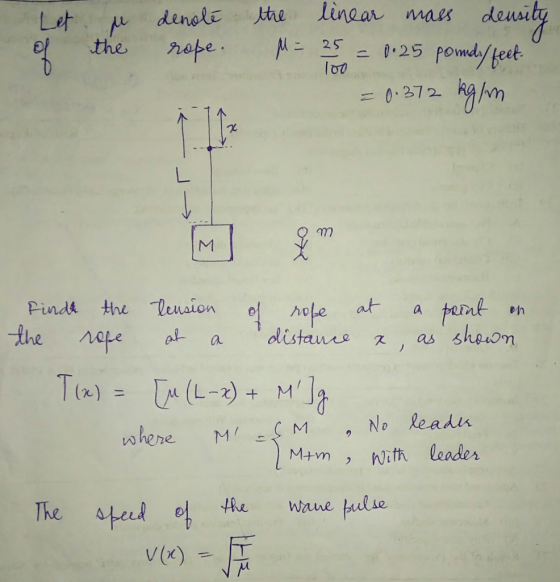 Let μ denote the linear mass density
of the rope. μ = 25/100 = 0.25 pound/feet.
= 0.372 kg/m
x
L
M
m
Finds the Tension of rope at a point on
the rope at a distance x, as shown
T(x) = [μ(L-x) + M']g
where M' = { M , No leader
M+m , With leader
The speed of the wave pulse
V(x) = √(T/μ)